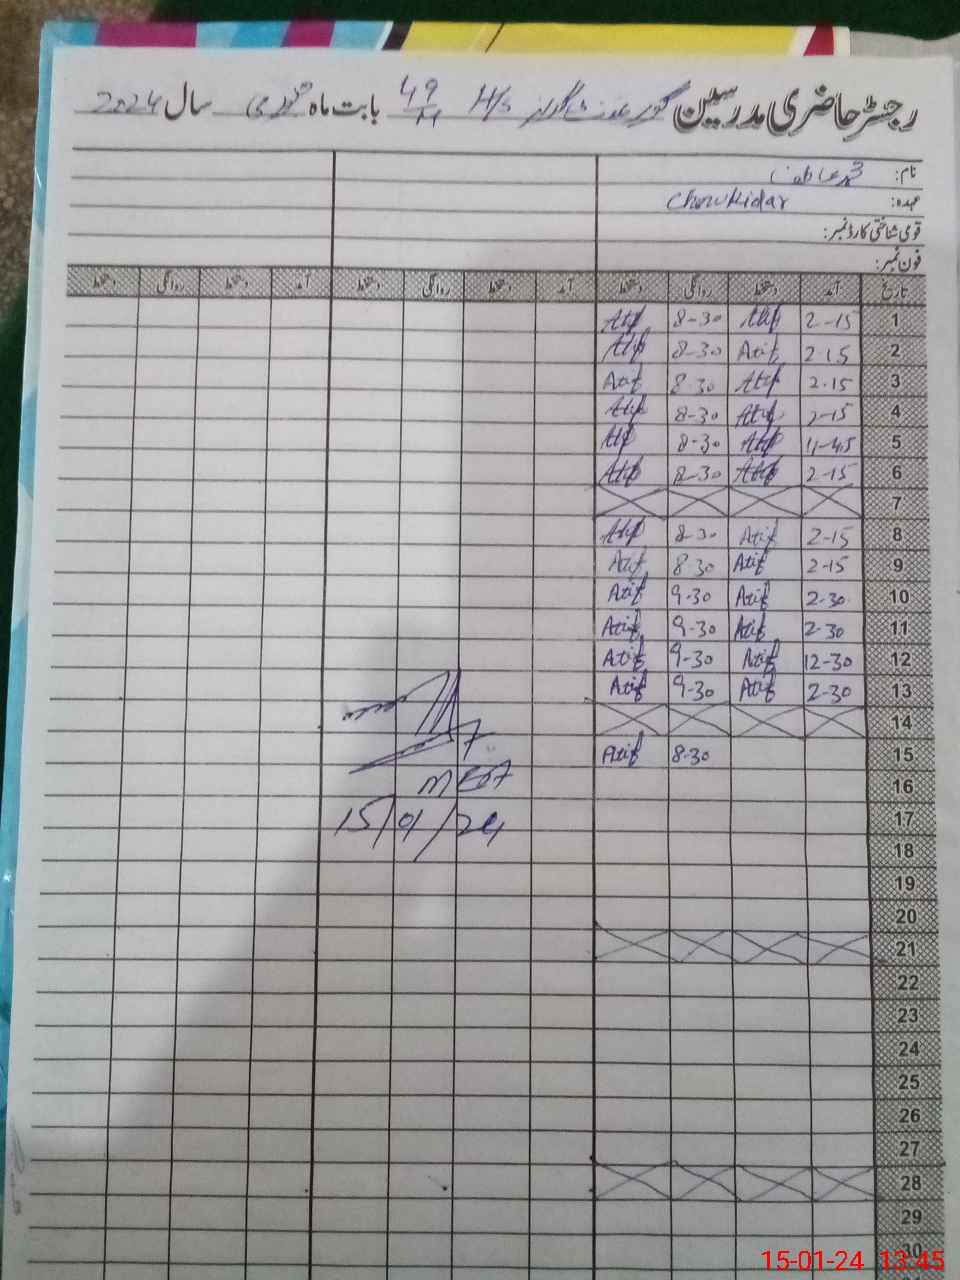 رجسٹر حاضری مدرسین گورنمنٹ گرلز H/s 49/M بابت ماہ جنوری سال 2024
نام: محمد عاطف
عہدہ: Chowkidar
قومی شناختی کارڈ نمبر:
فون نمبر:
تاریخ آمد دستخط روانگی دستخط آمد دستخط روانگی دستخط آمد دستخط روانگی دستخط
1 2-15 Atif 8-30 Atif
2 2.15 Atif 8-30 Atif
3 2.15 Atif 8.30 Atif
4 2-15 Atif 8-30 Atif
5 11-45 Atif 8-30 Atif
6 2-15 Atif 8-30 Atif
7
8 2-15 Atif 8-30 Atif
9 2-15 Atif 8.30 Atif
10 2-30 Atif 9-30 Atif
11 2-30 Atif 9-30 Atif
12 12-30 Atif 9-30 Atif
13 2-30 Atif 9-30 Atif
14
15 8-30 Atif
16
17
18
19
20
21
22
23
24
25
26
27
28
29
30
15/01/24
15-01-24 13:45